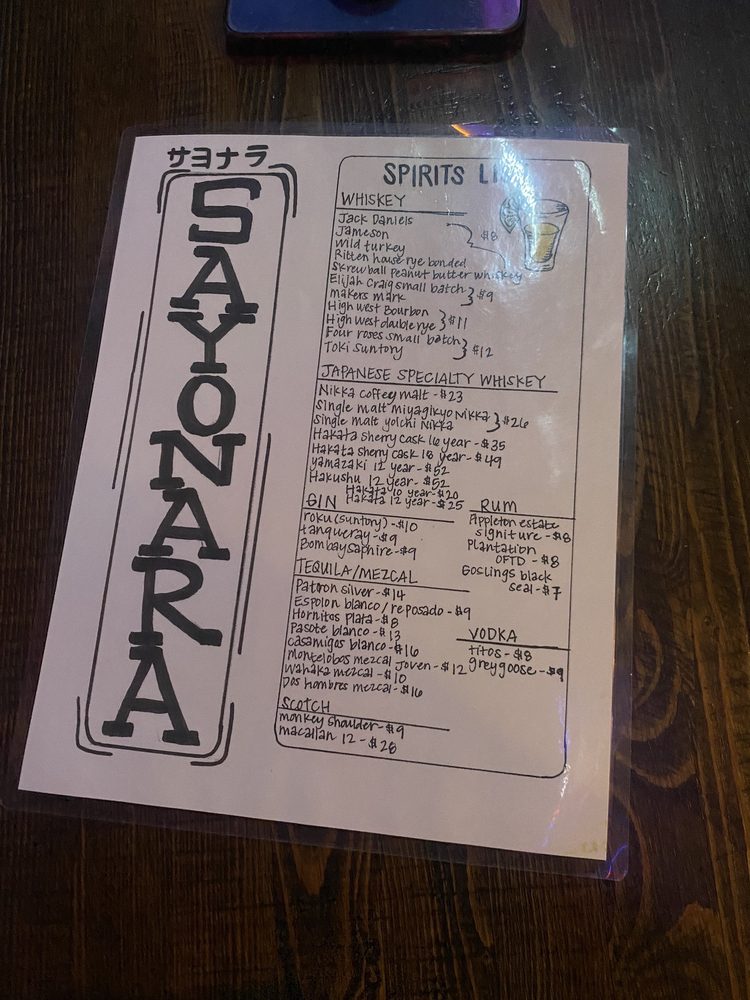 サヨナラ
SAYONARA
SPIRITS
WHISKEY
Jack Daniels
Jameson
Wild turkey
Ritten house rye bonded
$8
Skrewball peanut butter whiskey
Elijah Craig small batch
makers mark
$9
High west Bourbon
High west double rye
$11
Four roses small batch
Toki Suntory
$12
JAPANESE SPECIALTY WHISKEY
Nikka coffey malt - $23
Single malt miyagikyo Nikka
Single malt yoichi Nikka
$26
Hakata sherry cask 16 year - $35
Hakata sherry cask 18 year - $49
yamazaki 12 year - $52
Hakushu 12 year - $52
Hakata 10 year - $20
Hakata 12 year - $25
GIN
roku (suntory) - $10
tanqueray - $9
Bombay saphire - $9
RUM
Appleton estate
signiture - $8
Plantation
OFTD - $8
Goslings black
seal - $7
TEQUILA/MEZCAL
Patron silver - $14
Espolon blanco / reposado - $9
Hornitos plata - $8
Pasote blanco - $13
casamigos blanco - $16
montelobos mezcal Joven - $12
Wahaka mezcal - $10
Dos hombres mezcal - $16
VODKA
titos - $8
grey goose - $9
SCOTCH
monkey shoulder - $9
macallan 12 - $28